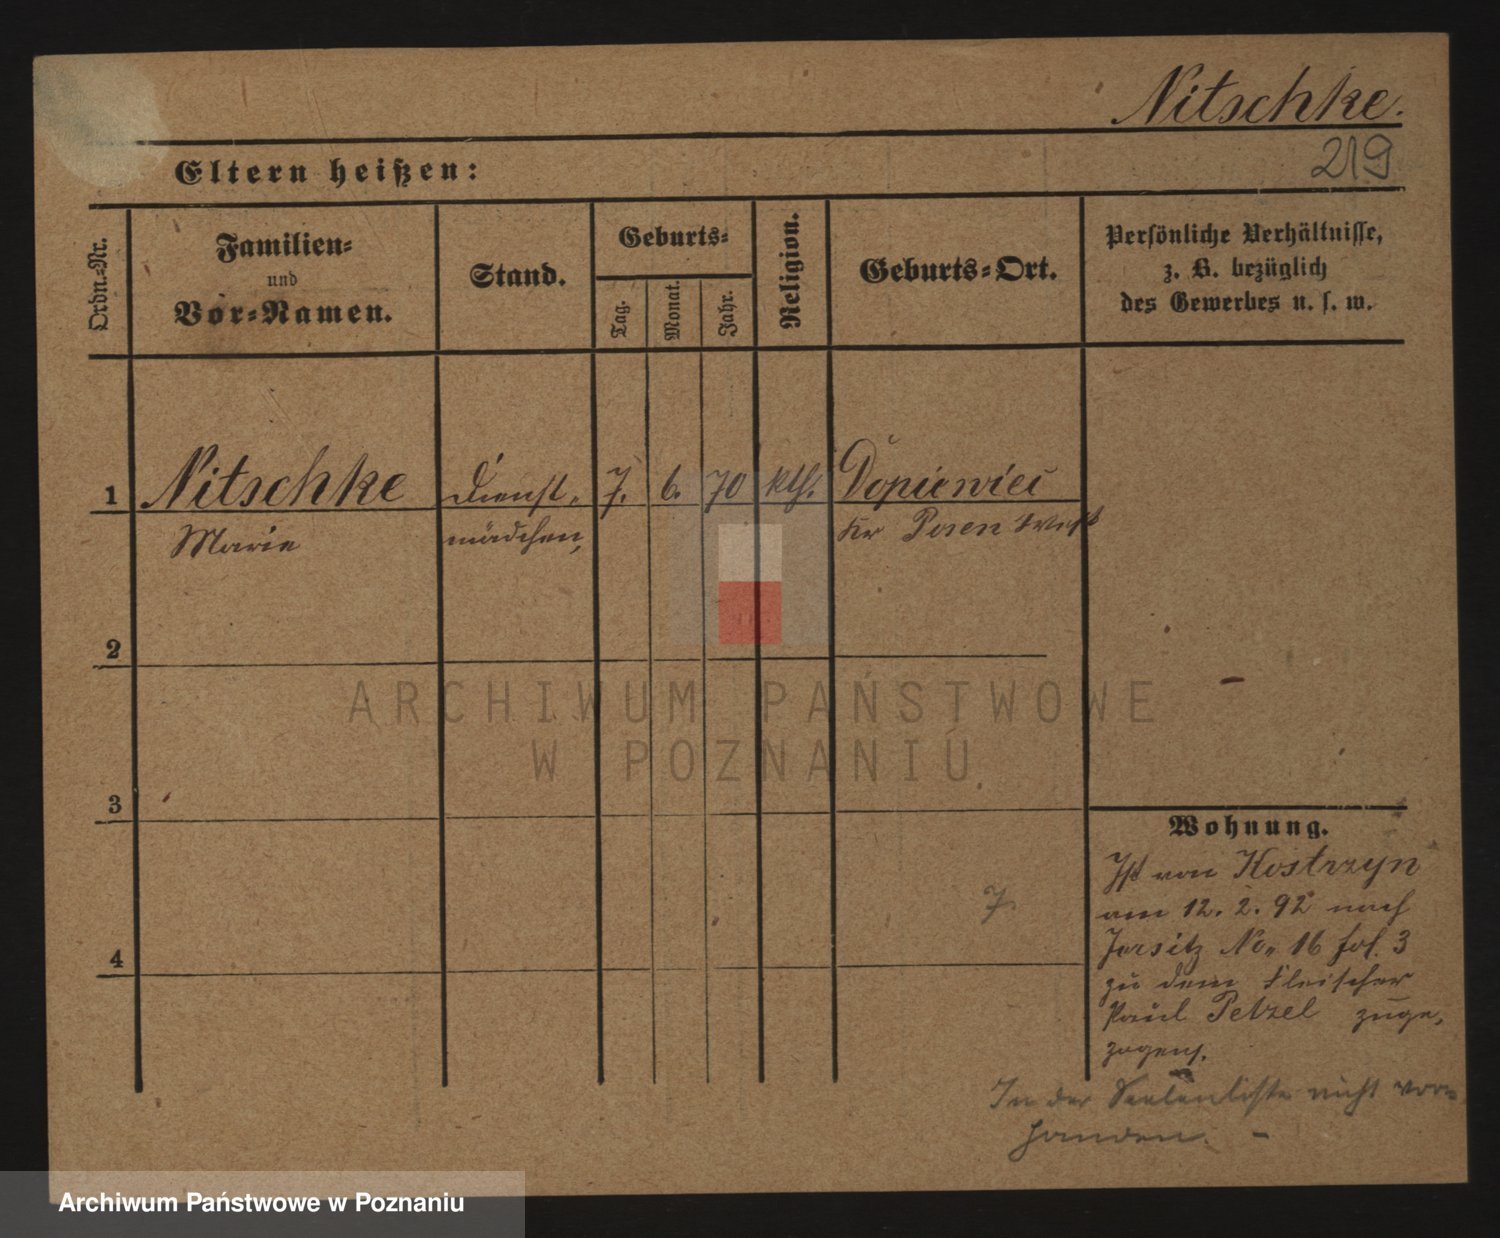 Nitschke.
219
Eltern heißen:
Ordn.-Nr.
Familien-
und
Vor-Namen.
Stand.
Geburts-
Tag.
Monat.
Jahr.
Religion.
Geburts-Ort.
Persönliche Verhältnisse,
z. B. bezüglich
des Gewerbes u. s. w.
1 Nitschke Dienst- 7. 6. 70 kth. Dopiewiec
Marie mädchen, Kr Posen West
2
3
4
Wohnung.
Ist von Kostrzyn
am 12. 2. 92 nach
Jersitz No. 16 fol. 3
zu dem Fleischer
Paul Petzel zuge-
zogen.
7
In der Seelenliste nicht vor-
handen. -
ARCHIWUM PAŃSTWOWE
W POZNANIU
Archiwum Państwowe w Poznaniu